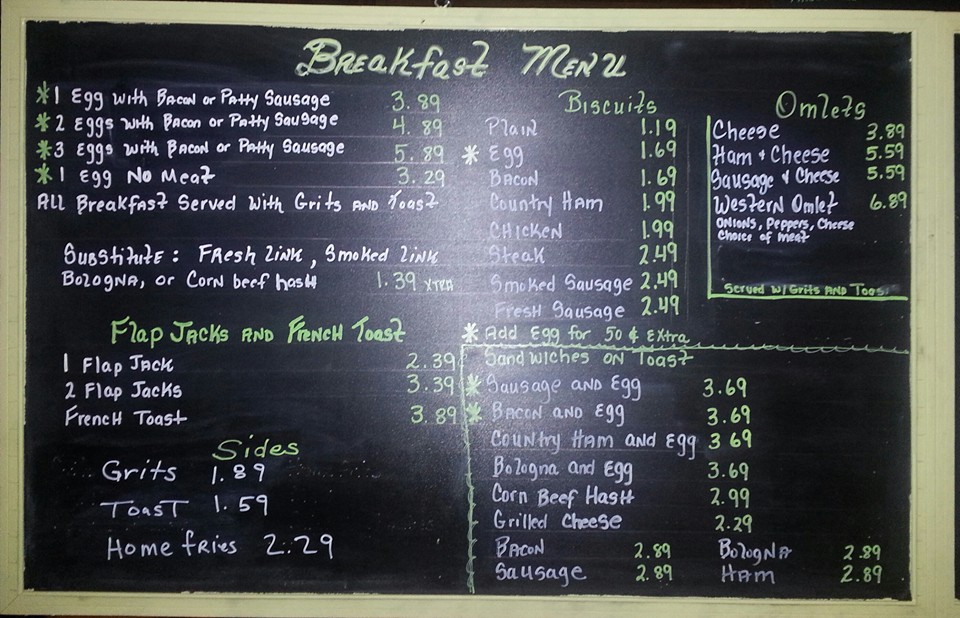 Breakfast Menu
*1 Egg with Bacon or Patty Sausage 3.89
*2 Eggs with Bacon or Patty Sausage 4.89
*3 Eggs with Bacon or Patty Sausage 5.89
*1 Egg No Meat 3.29
All Breakfast Served With Grits AND Toast
Substitute: Fresh Link, Smoked Link
Bologna, or Corn beef hash 1.39 xtra
Flap Jacks and French Toast
1 Flap Jack 2.39
2 Flap Jacks 3.39
French Toast 3.89
Sides
Grits 1.89
Toast 1.59
Home fries 2.29
Biscuits
Plain 1.19
* Egg 1.69
Bacon 1.69
Country Ham 1.99
Chicken 1.99
Steak 2.49
Smoked Sausage 2.49
Fresh Sausage 2.49
* Add Egg for 50¢ Extra
Omlets
Cheese 3.89
Ham + Cheese 5.59
Sausage + Cheese 5.59
Western Omlet 6.89
Onions, Peppers, Cheese
Choice of meat
Served w/ Grits AND Toos
Sandwiches on Toast
* Sausage and Egg 3.69
* Bacon and Egg 3.69
Country Ham and Egg 3 69
Bologna and Egg 3.69
Corn Beef Hash 2.99
Grilled Cheese 2.29
Bacon 2.89 Bologna 2.89
Sausage 2.89 Ham 2.89